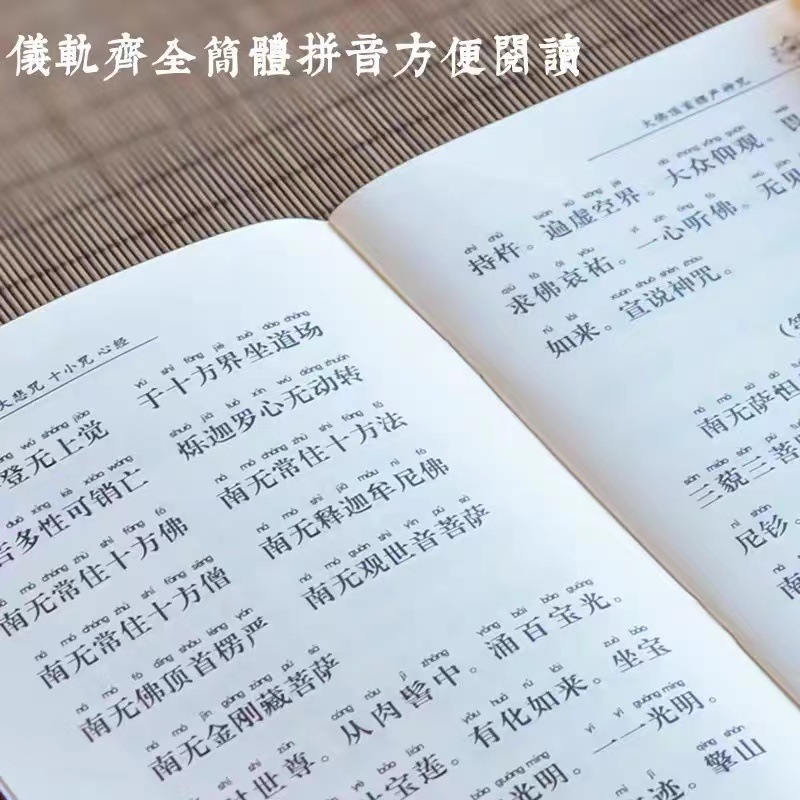 儀軌齊全簡體拼音方便閱讀
大悲咒 十小咒 心经
wú shàng jiǎo yú shí fāng jiè zuò dào chǎng
登无上觉 于十方界坐道场
duō xìng kě xiāo wáng shuò jiā luó xīn wú dòng zhuǎn
多性可销亡 烁迦罗心无动转
ná mó cháng zhù shí fāng fó ná mó cháng zhù shí fāng fǎ
南无常住十方佛 南无常住十方法
ná mó cháng zhù shí fāng sēng ná mó shì jiā móu ní fó
南无常住十方僧 南无释迦牟尼佛
ná mó fó dǐng shǒu léng yán ná mó guān shì yīn pú sà
南无佛顶首楞严 南无观世音菩萨
ná mó jīn gāng zàng pú sà
南无金刚藏菩萨
shì zūn cóng ròu jì zhōng yǒng bǎi bǎo guāng
世尊。从肉髻中。涌百宝光。
bǎo lián yǒu huà rú lái zuò bǎo
宝莲。有化如来。坐宝
guāng míng yī yī guāng míng
光明。一一光明。
qíng shān
迹。擎山
大佛顶首楞严神咒
chí chǔ biàn xū kōng jiè dà zhòng yǎng guān
持杵。遍虚空界。大众仰观。畏
qiú fó āi yòu yī xīn tīng fó wú jiàn
求佛哀祐。一心听佛。无见
rú lái xuān shuō shén zhòu
如来。宣说神咒。
ná mó sà dá
南无萨怛
sān miǎo sān pú
三藐三菩
ní shān
尼钐。
南